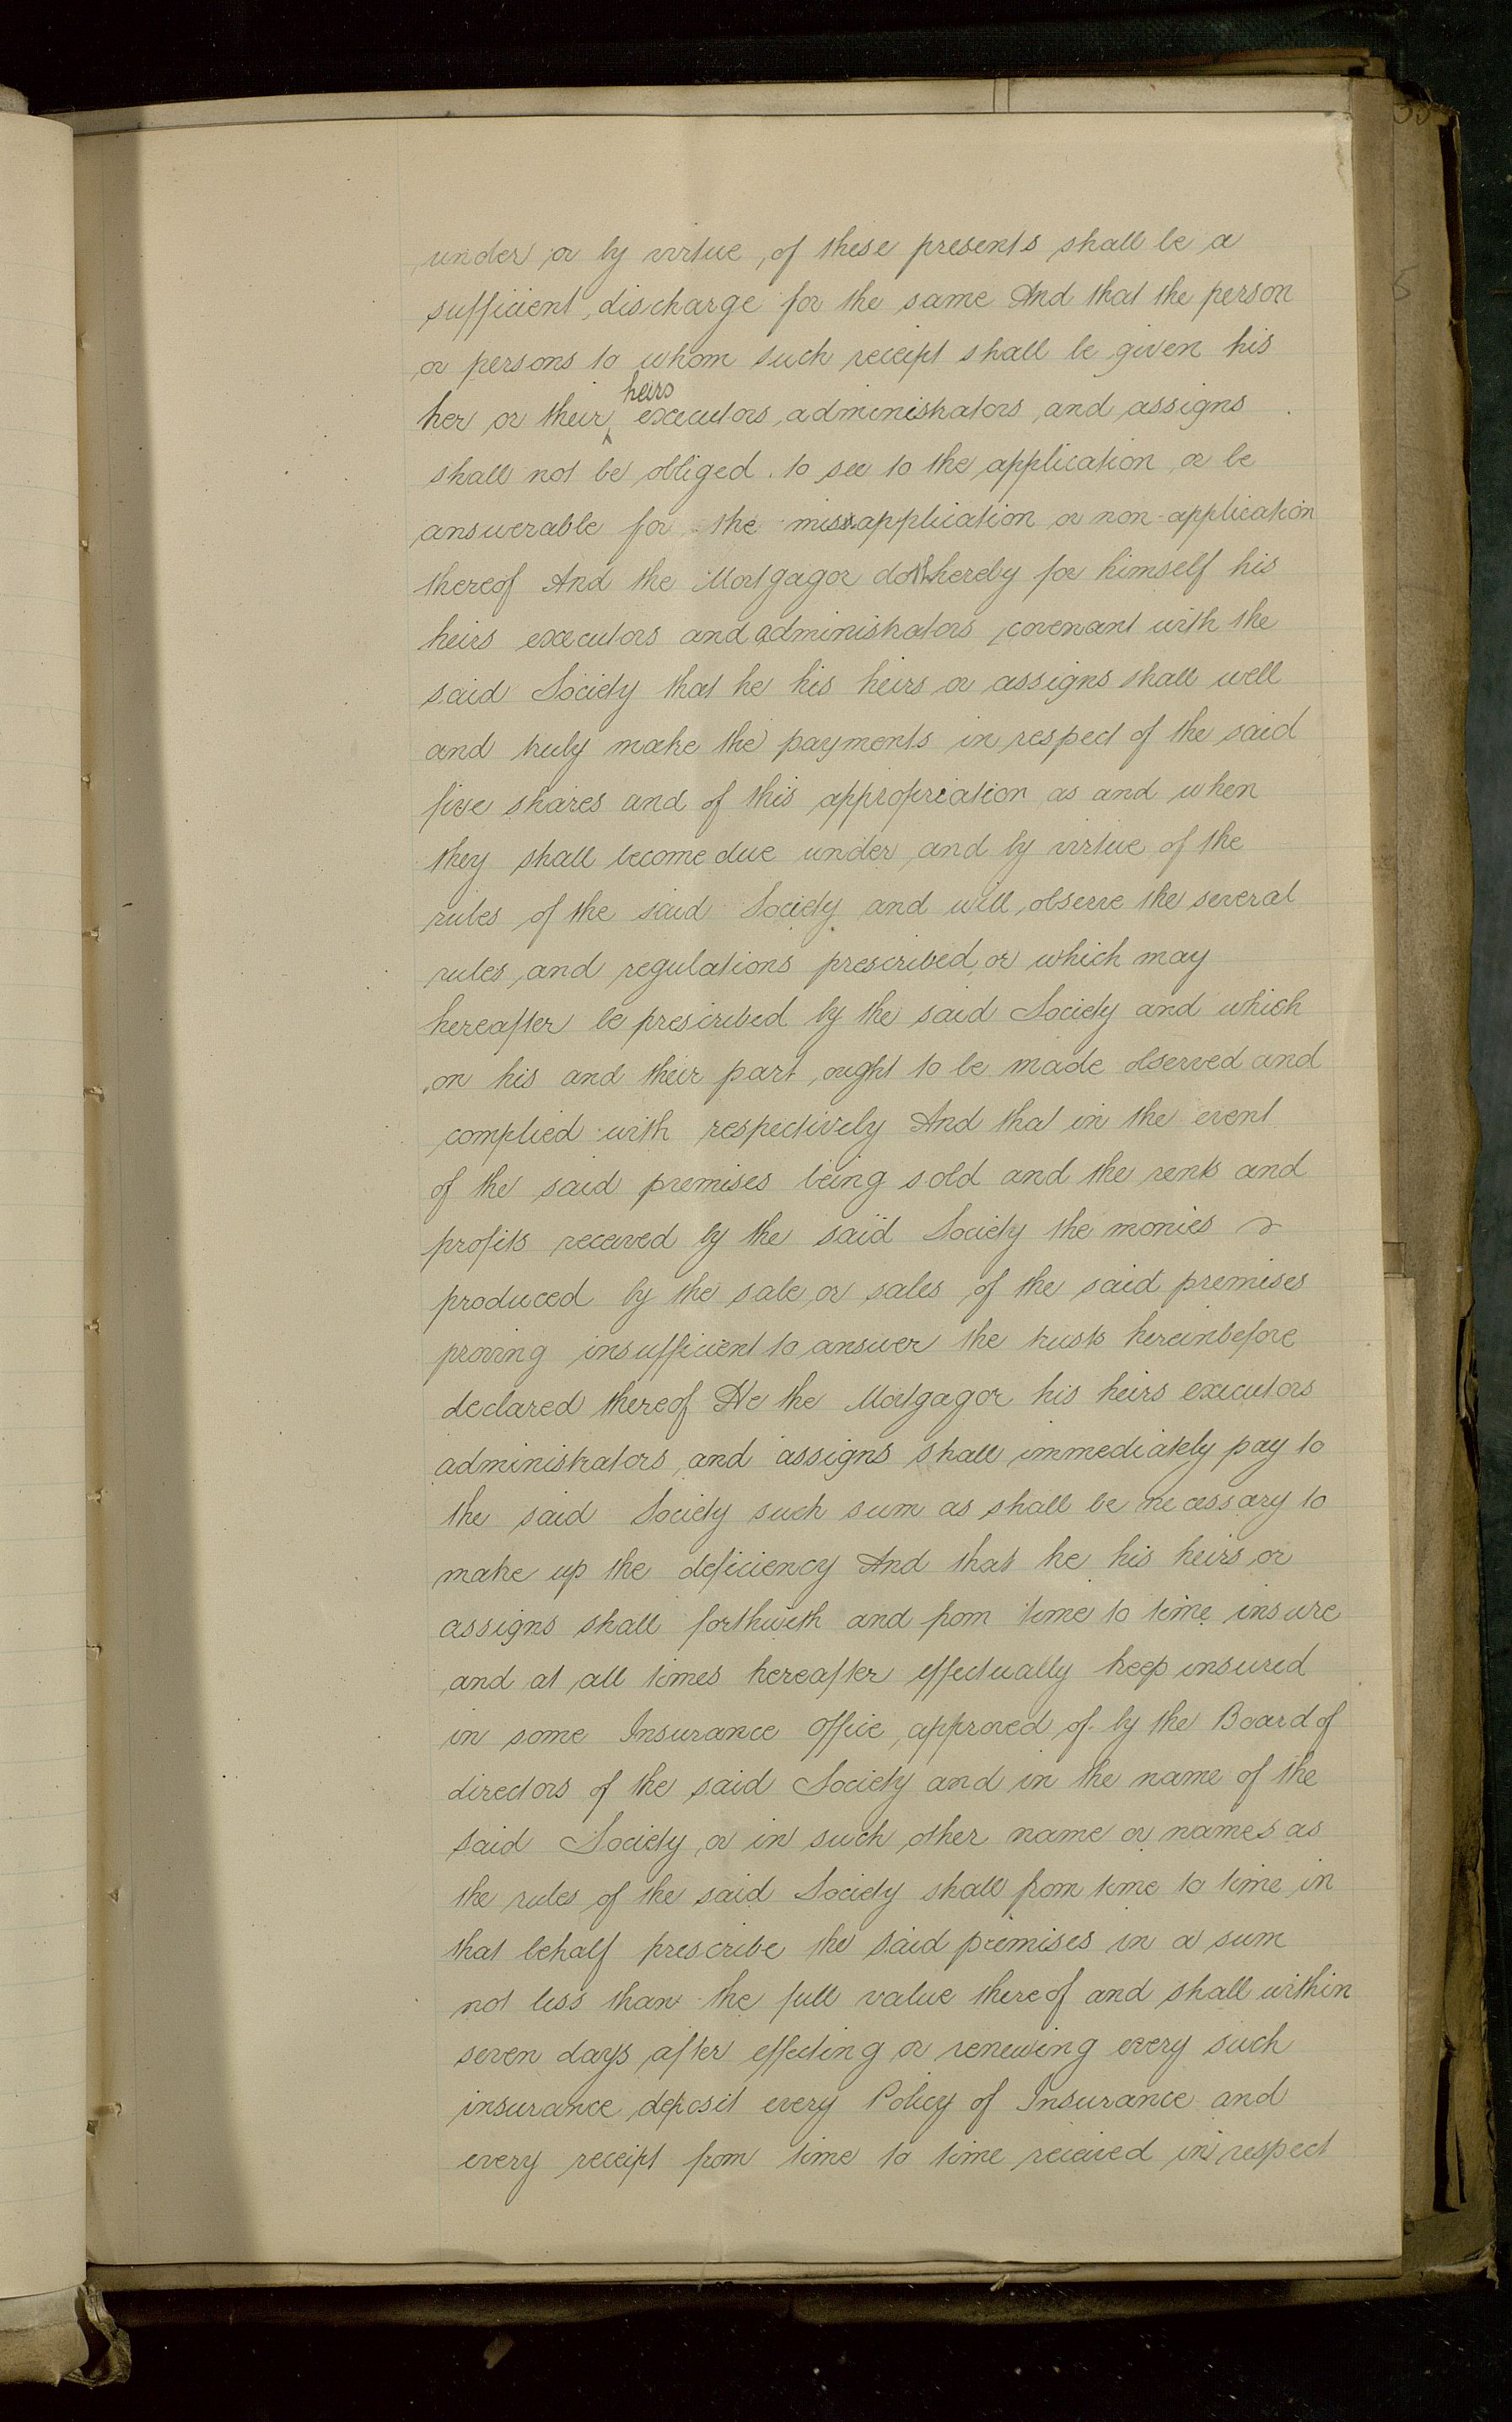 under or by virtue of these presents shall be a
sufficient discharge for the same And that the person
or persons to whom such receipt shall be given his
heirs
her or their executors administrators and assigns
shall not be obliged to see to the application or be
answerable for the misapplication or non-application
thereof And the Mortgagor doth hereby for himself his
heirs executors and administrators covenant with the
said Society that he his heirs or assigns shall well
and truly make the payments in respect of the said
five shares and of this appropriation as and when
they shall become due under and by virtue of the
rules of the said Society and will observe the several
rules and regulations prescribed or which may
hereafter be prescribed by the said Society and which
on his and their part ought to be made observed and
complied with respectively And that in the event
of the said premises being sold and the rents and
profits received by the said Society the monies
produced by the sale or sales of the said premises
proving insufficient to answer the trusts hereinbefore
declared thereof He the Mortgagor his heirs executors
administrators and assigns shall immediately pay to
the said Society such sum as shall be necessary to
make up the deficiency And that he his heirs or
assigns shall forthwith and from time to time insure
and at all times hereafter effectually keep insured
in some Insurance Office approved of by the Board of
directors of the said Society and in the name of the
said Society or in such other name or names as
the rules of the said Society shall from time to time in
that behalf prescribe the said premises in a sum
not less than the full value thereof and shall within
seven days after effecting or renewing every such
insurance deposit every Policy of Insurance and
every receipt from time to time received in respect